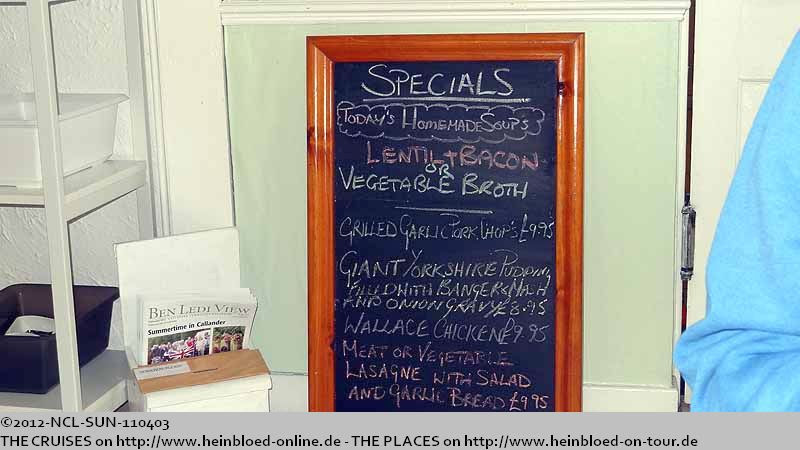 SPECIALS
TODAY'S HOMEMADE SOUPS
LENTIL + BACON
OR
VEGETABLE BROTH
GRILLED GARLIC PORK CHOP'S £9.95
GIANT YORKSHIRE PUDDING
FILLED WITH BANGERS MASH
AND ONION GRAVY £8.95
WALLACE CHICKEN £9.95
MEAT OR VEGETABLE
LASAGNE WITH SALAD
AND GARLIC BREAD £9.95
BEN LEDI VIEW
Summertime in Callander
©2012-NCL-SUN-110403
THE CRUISES on http://www.heinbloed-online.de - THE PLACES on http://www.heinbloed-on-tour.de